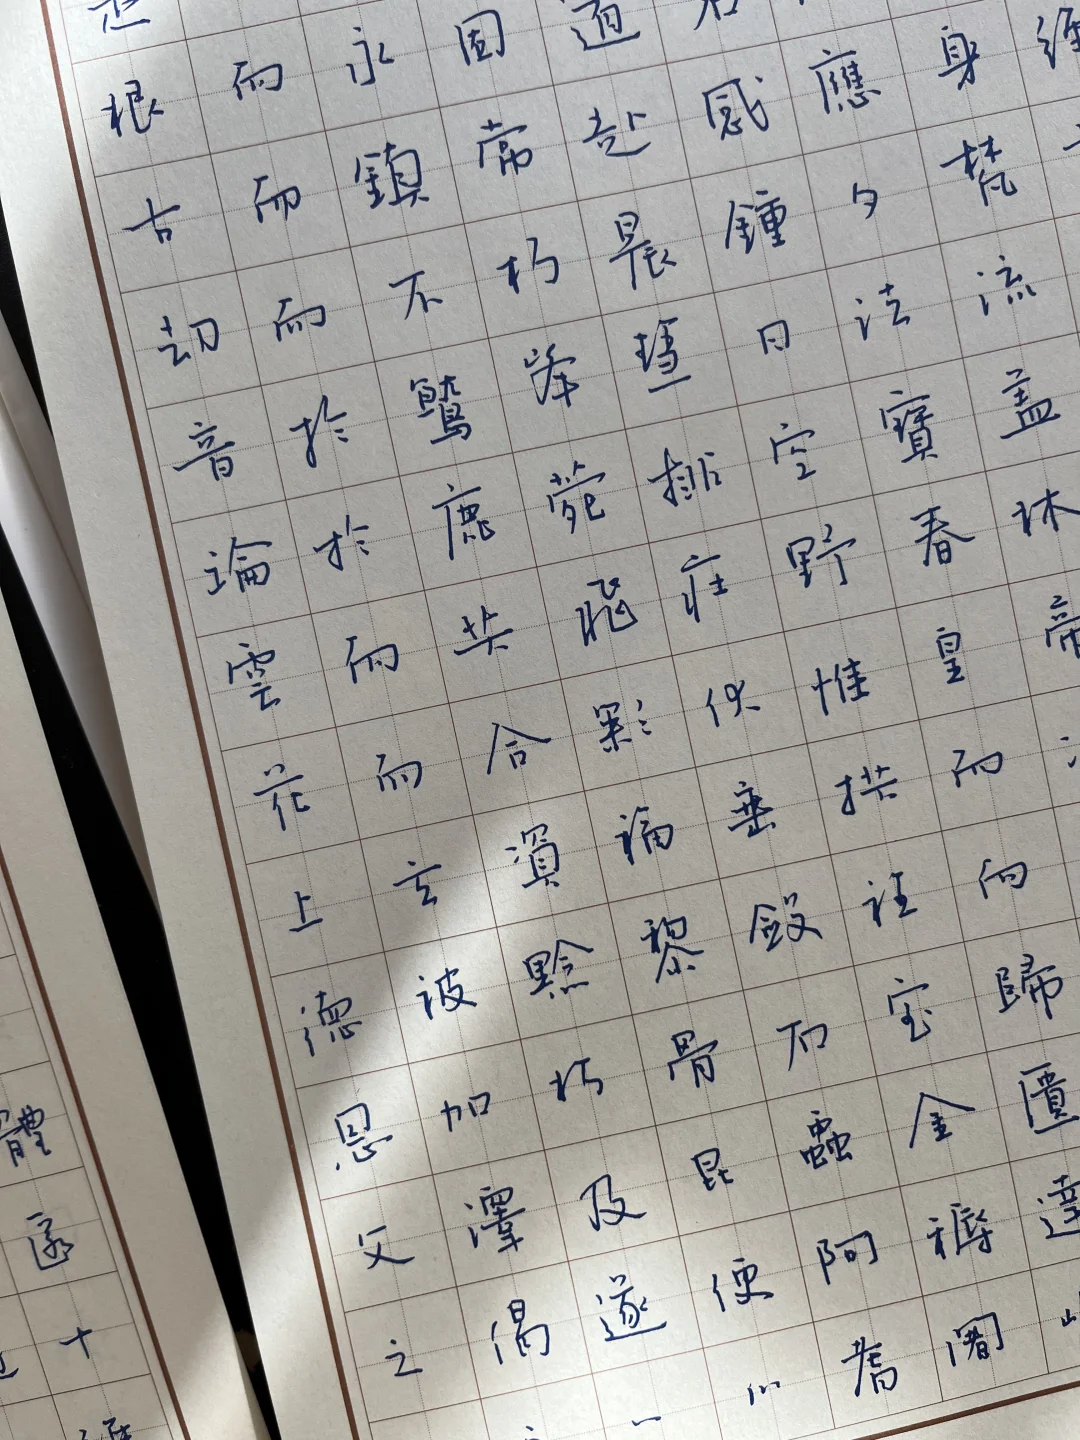 根而永固道名
古而鎮常赴感應身經
劫而不朽晨鐘夕梵
音於鷲峯慧日法流
論於鹿苑排空寶蓋
雲而共飛莊野春林
花而合彩伏惟皇帝
上玄資福垂拱而
德被黔黎斂衽而
恩加朽骨石室歸
文澤及昆蟲金匱
之偈遂使阿耨達
耆闍
體
十